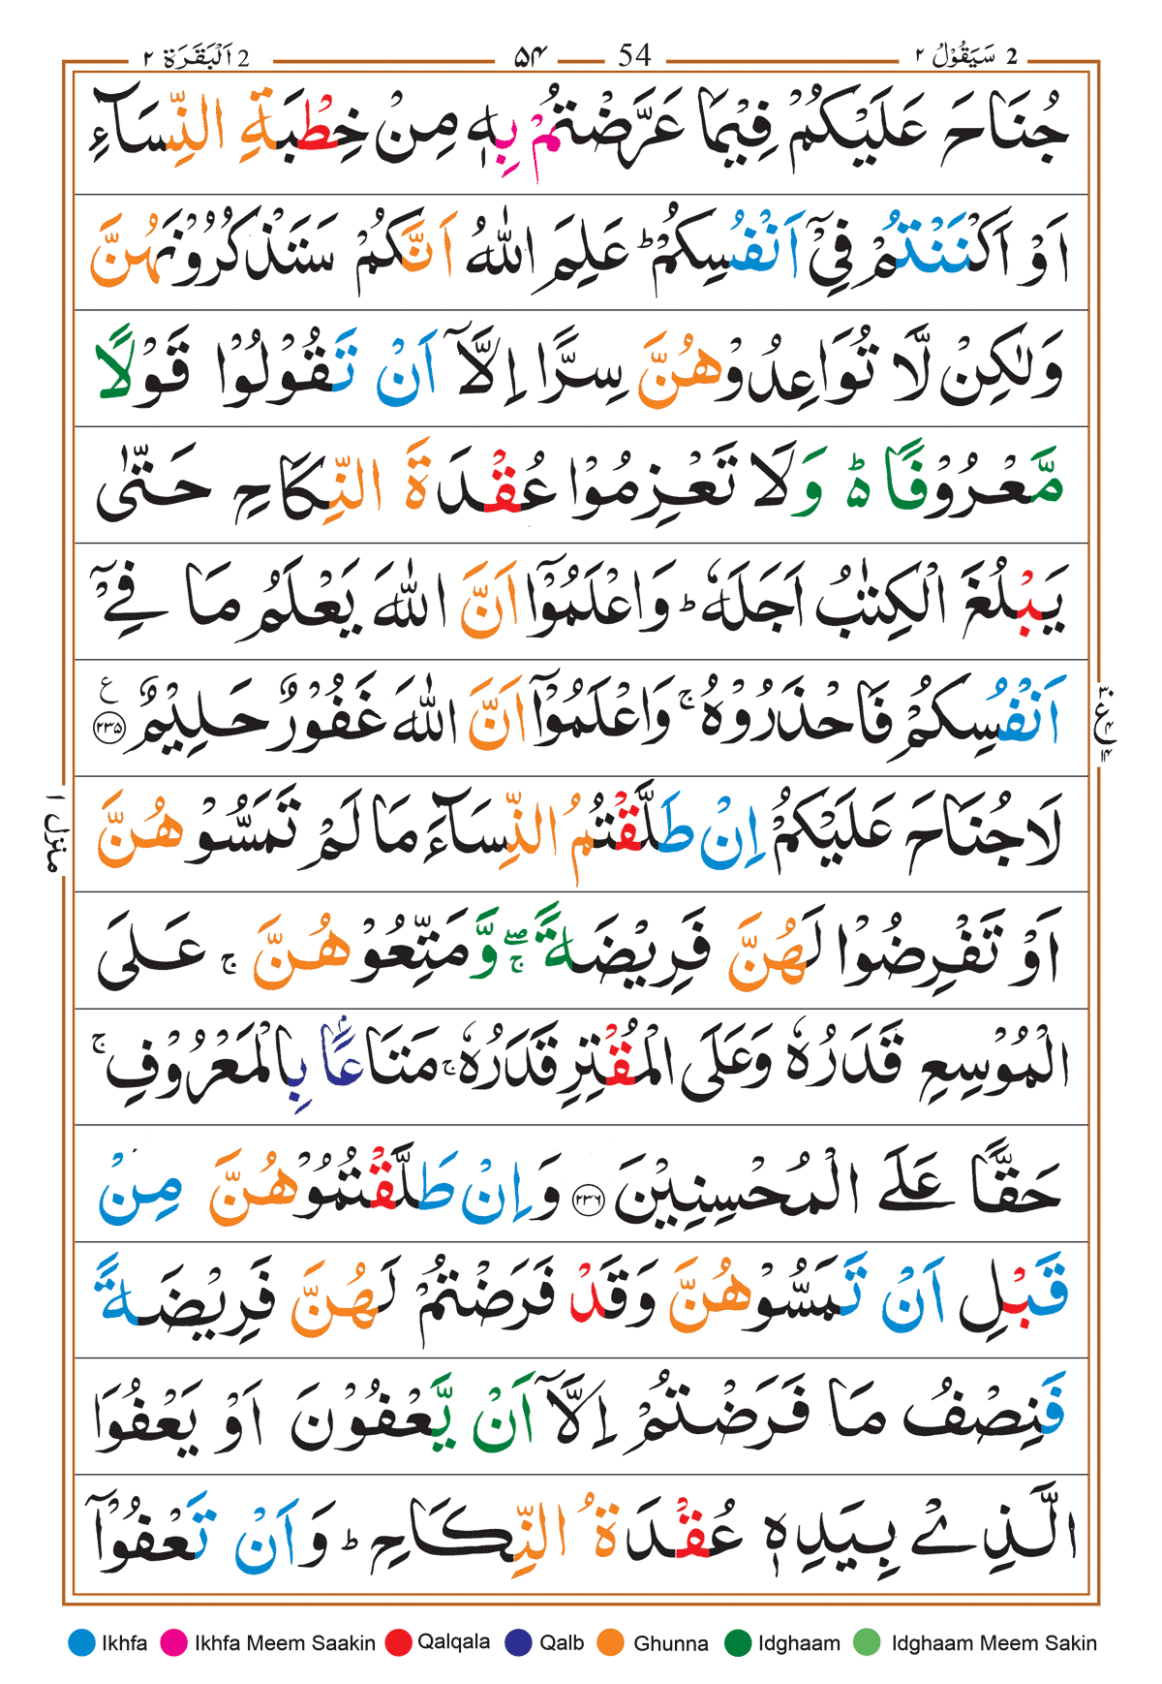 2 سَيَقُوْلُ ٢ 54 ۵۴ 2 اَلْبَقَرَة ٢
جُنَاحَ عَلَيْكُمْ فِيْمَا عَرَّضْتُمْ بِهٖ مِنْ خِطْبَةِ النِّسَآءِ
اَوْ اَكْنَنْتُمْ فِيْۤ اَنْفُسِكُمْ ؕ عَلِمَ اللّٰهُ اَنَّكُمْ سَتَذْكُرُوْنَهُنَّ
وَلٰكِنْ لَّا تُوَاعِدُوْهُنَّ سِرًّا اِلَّاۤ اَنْ تَقُوْلُوْا قَوْلًا
مَّعْرُوْفًا ؕ۬ وَلَا تَعْزِمُوْا عُقْدَةَ النِّكَاحِ حَتّٰى
يَبْلُغَ الْكِتٰبُ اَجَلَهٗ ؕ وَاعْلَمُوْۤا اَنَّ اللّٰهَ يَعْلَمُ مَا فِيْۤ
اَنْفُسِكُمْ فَاحْذَرُوْهُ ۚ وَاعْلَمُوْۤا اَنَّ اللّٰهَ غَفُوْرٌ حَلِيْمٌ ۝۲۳۵ ع
لَاجُنَاحَ عَلَيْكُمْ اِنْ طَلَّقْتُمُ النِّسَآءَ مَا لَمْ تَمَسُّوْهُنَّ
اَوْ تَفْرِضُوْا لَهُنَّ فَرِيْضَةً ۖۚ وَّمَتِّعُوْهُنَّ ۚ عَلَى
الْمُوْسِعِ قَدَرُهٗ وَعَلَى الْمُقْتِرِ قَدَرُهٗ ۚ مَتَاعًاۢ بِالْمَعْرُوْفِ ۚ
حَقًّا عَلَى الْمُحْسِنِيْنَ ۝۲۳۶ وَاِنْ طَلَّقْتُمُوْهُنَّ مِنْ
قَبْلِ اَنْ تَمَسُّوْهُنَّ وَقَدْ فَرَضْتُمْ لَهُنَّ فَرِيْضَةً
فَنِصْفُ مَا فَرَضْتُمْ اِلَّاۤ اَنْ يَّعْفُوْنَ اَوْ يَعْفُوَا
الَّذِيْ بِيَدِهٖ عُقْدَةُ النِّكَاحِ ؕ وَاَنْ تَعْفُوْۤا
منزل ١
Ikhfa Ikhfa Meem Saakin Qalqala Qalb Ghunna Idghaam Idghaam Meem Sakin